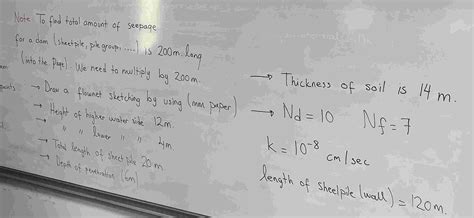 Note: To find total amount of seepage
for a dam (sheetpile, pile group, ....) is 200m long
(into the Page). We need to multiply by 200m.
→ Draw a flownet sketching by using (mm paper)
→ Height of higher water side 12m.
→ " " lower " 4m
→ Total length of sheet pile 20m
→ Depth of penetration (6m)
→ Thickness of soil is 14 m.
→ Nd = 10 Nf = 7
k = 10⁻⁸ cm/sec
length of sheetpile (wall) = 120m.